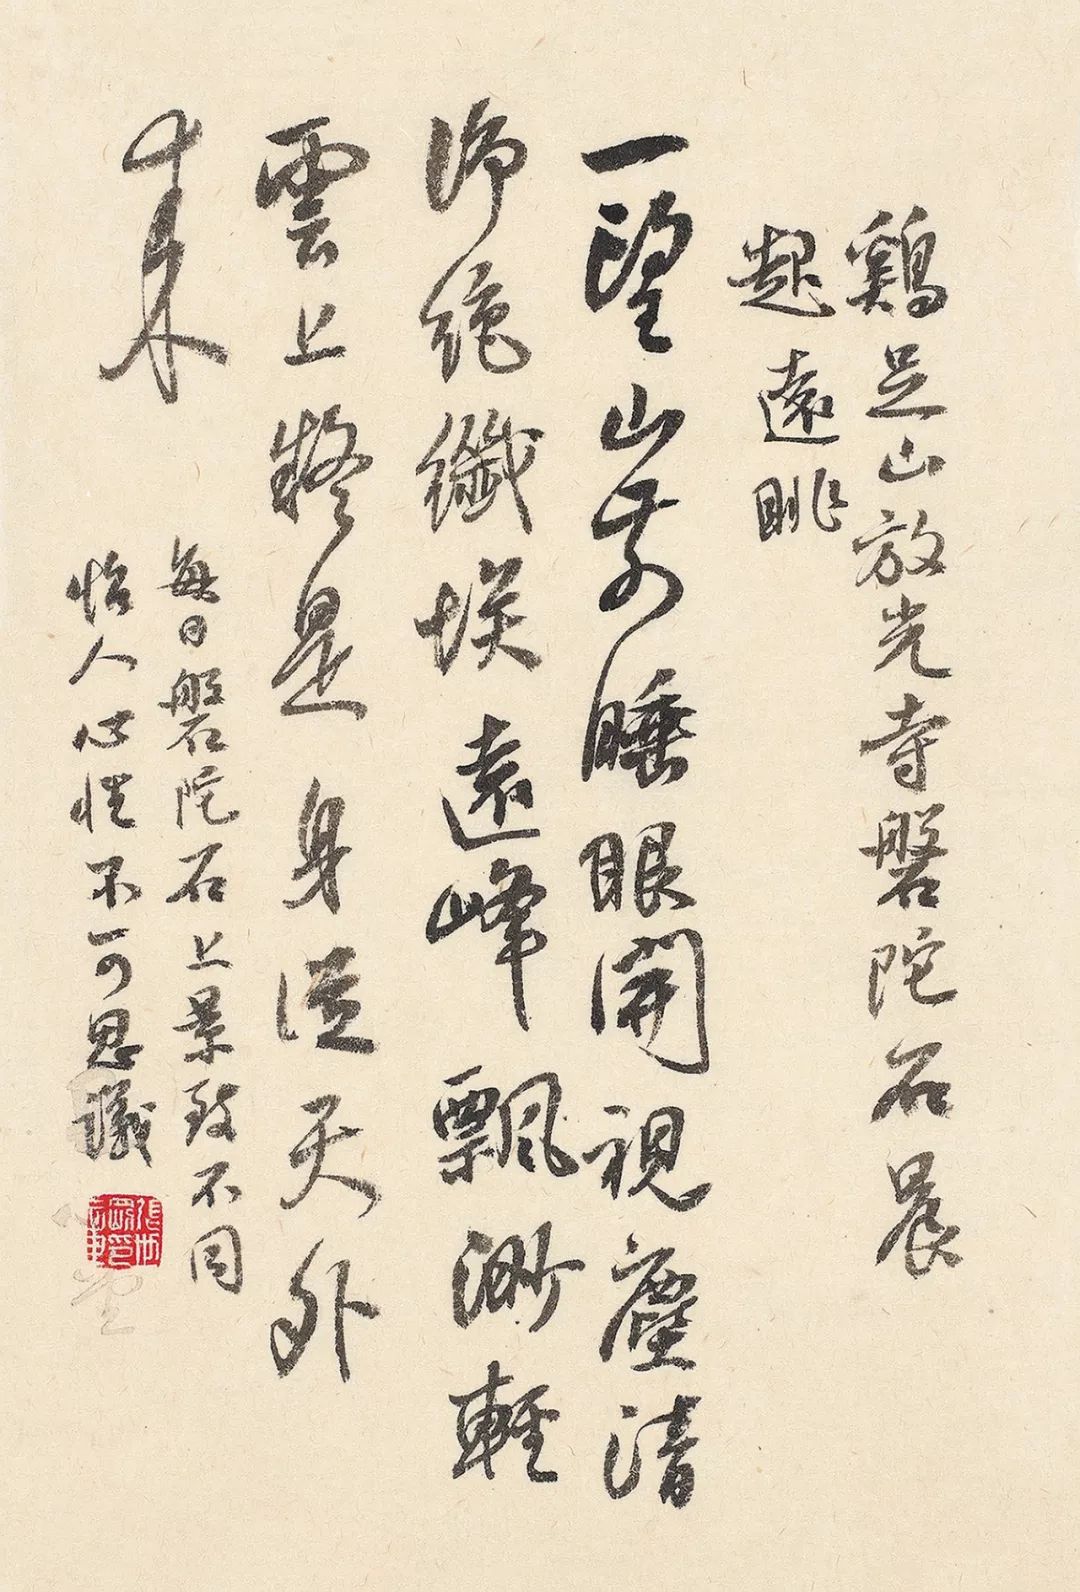 鷄足山放光寺磐陀石晨
起遠眺
一望山前睡眼開視塵清
淨絕纖埃遠峰飄渺輕
雲上疑是身從天外
來
每日磐陀石上景致不同
怡人心性不可思議